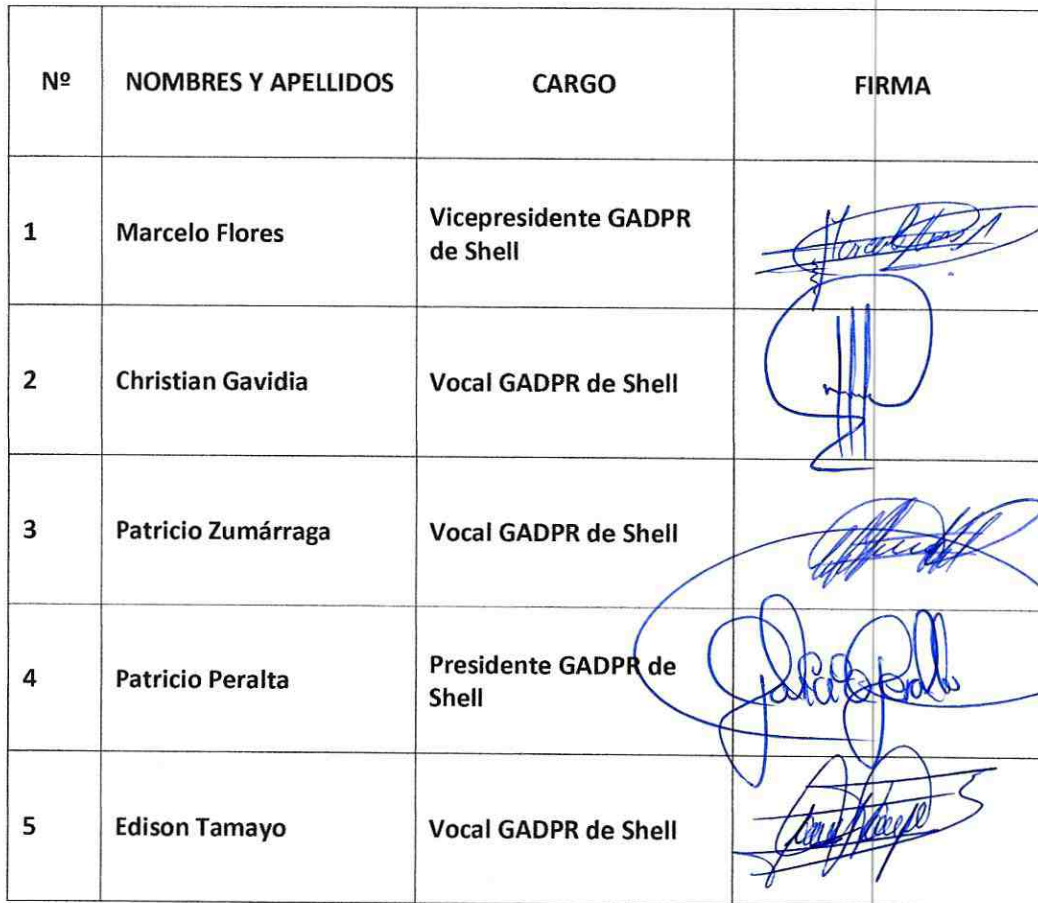 Nº NOMBRES Y APELLIDOS CARGO FIRMA
1 Marcelo Flores Vicepresidente GADPR
de Shell
2 Christian Gavidia Vocal GADPR de Shell
3 Patricio Zumárraga Vocal GADPR de Shell
4 Patricio Peralta Presidente GADPR de
Shell
5 Edison Tamayo Vocal GADPR de Shell